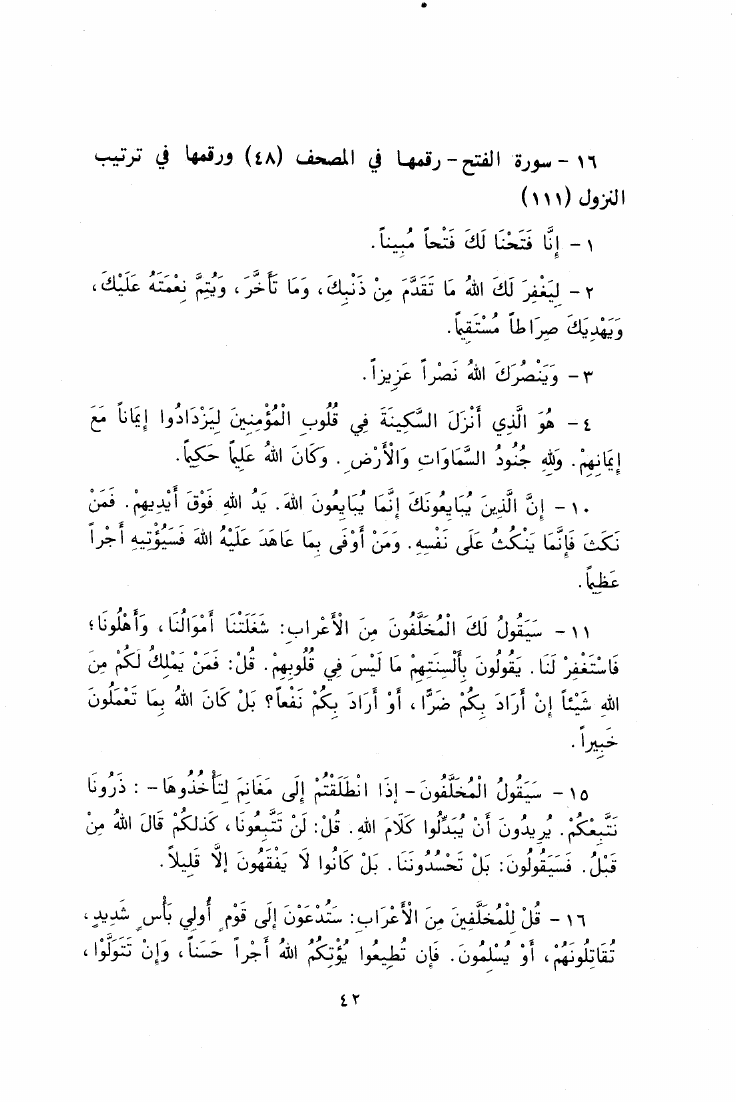 ١٦ - سورة الفتح - رقمها في المصحف (٤٨) ورقمها في ترتيب
النزول (١١١)
١ - إِنَّا فَتَحْنَا لَكَ فَتْحاً مُبِيناً.
٢ - لِيَغْفِرَ لَكَ اللهُ مَا تَقَدَّمَ مِنْ ذَنْبِكَ، وَمَا تَأَخَّرَ، وَيُتِمَّ نِعْمَتَهُ عَلَيْكَ،
وَيَهْدِيَكَ صِرَاطاً مُسْتَقِيماً.
٣ - وَيَنْصُرَكَ اللهُ نَصْراً عَزِيزاً.
٤ - هُوَ الَّذِي أَنْزَلَ السَّكِينَةَ فِي قُلُوبِ الْمُؤْمِنِينَ لِيَزْدَادُوا إِيمَاناً مَعَ
إِيمَانِهِمْ. وَللهِ جُنُودُ السَّمَاوَاتِ وَالْأَرْضِ. وَكَانَ اللهُ عَلِيماً حَكِيماً.
١٠ - إِنَّ الَّذِينَ يُبَايِعُونَكَ إِنَّمَا يُبَايِعُونَ اللهَ. يَدُ اللهِ فَوْقَ أَيْدِيهِمْ. فَمَنْ
نَكَثَ فَإِنَّمَا يَنْكُثُ عَلَى نَفْسِهِ. وَمَنْ أَوْفَى بِمَا عَاهَدَ عَلَيْهُ اللهَ فَسَيُؤْتِيهِ أَجْراً
عَظِيماً.
١١ - سَيَقُولُ لَكَ الْمُخَلَّفُونَ مِنَ الْأَعْرَابِ: شَغَلَتْنَا أَمْوَالُنَا، وَأَهْلُونَا؛
فَاسْتَغْفِرْ لَنَا. يَقُولُونَ بِأَلْسِنَتِهِمْ مَا لَيْسَ فِي قُلُوبِهِمْ. قُلْ: فَمَنْ يَمْلِكُ لَكُمْ مِنَ
اللهِ شَيْئاً إِنْ أَرَادَ بِكُمْ ضَرًّا، أَوْ أَرَادَ بِكُمْ نَفْعاً؟ بَلْ كَانَ اللهُ بِمَا تَعْمَلُونَ
خَبِيراً.
١٥ - سَيَقُولُ الْمُخَلَّفُونَ - إِذَا انْطَلَقْتُمْ إِلَى مَغَانِمَ لِتَأْخُذُوهَا - : ذَرُونَا
نَتَّبِعْكُمْ. يُرِيدُونَ أَنْ يُبَدِّلُوا كَلَامَ اللهِ. قُلْ: لَنْ تَتَّبِعُونَا، كَذلِكُمْ قَالَ اللهُ مِنْ
قَبْلُ. فَسَيَقُولُونَ: بَلْ تَحْسُدُونَنَا. بَلْ كَانُوا لَا يَفْقَهُونَ إِلَّا قَلِيلاً.
١٦ - قُلْ لِلْمُخَلَّفِينَ مِنَ الْأَعْرَابِ: سَتُدْعَوْنَ إِلَى قَوْمٍ أُولِي بَأْسٍ شَدِيدٍ،
تُقَاتِلُونَهُمْ، أَوْ يُسْلِمُونَ. فَإِن تُطِيعُوا يُؤْتِكُمُ اللهُ أَجْراً حَسَناً، وَإِنْ تَتَوَلَّوْا،
٤٢